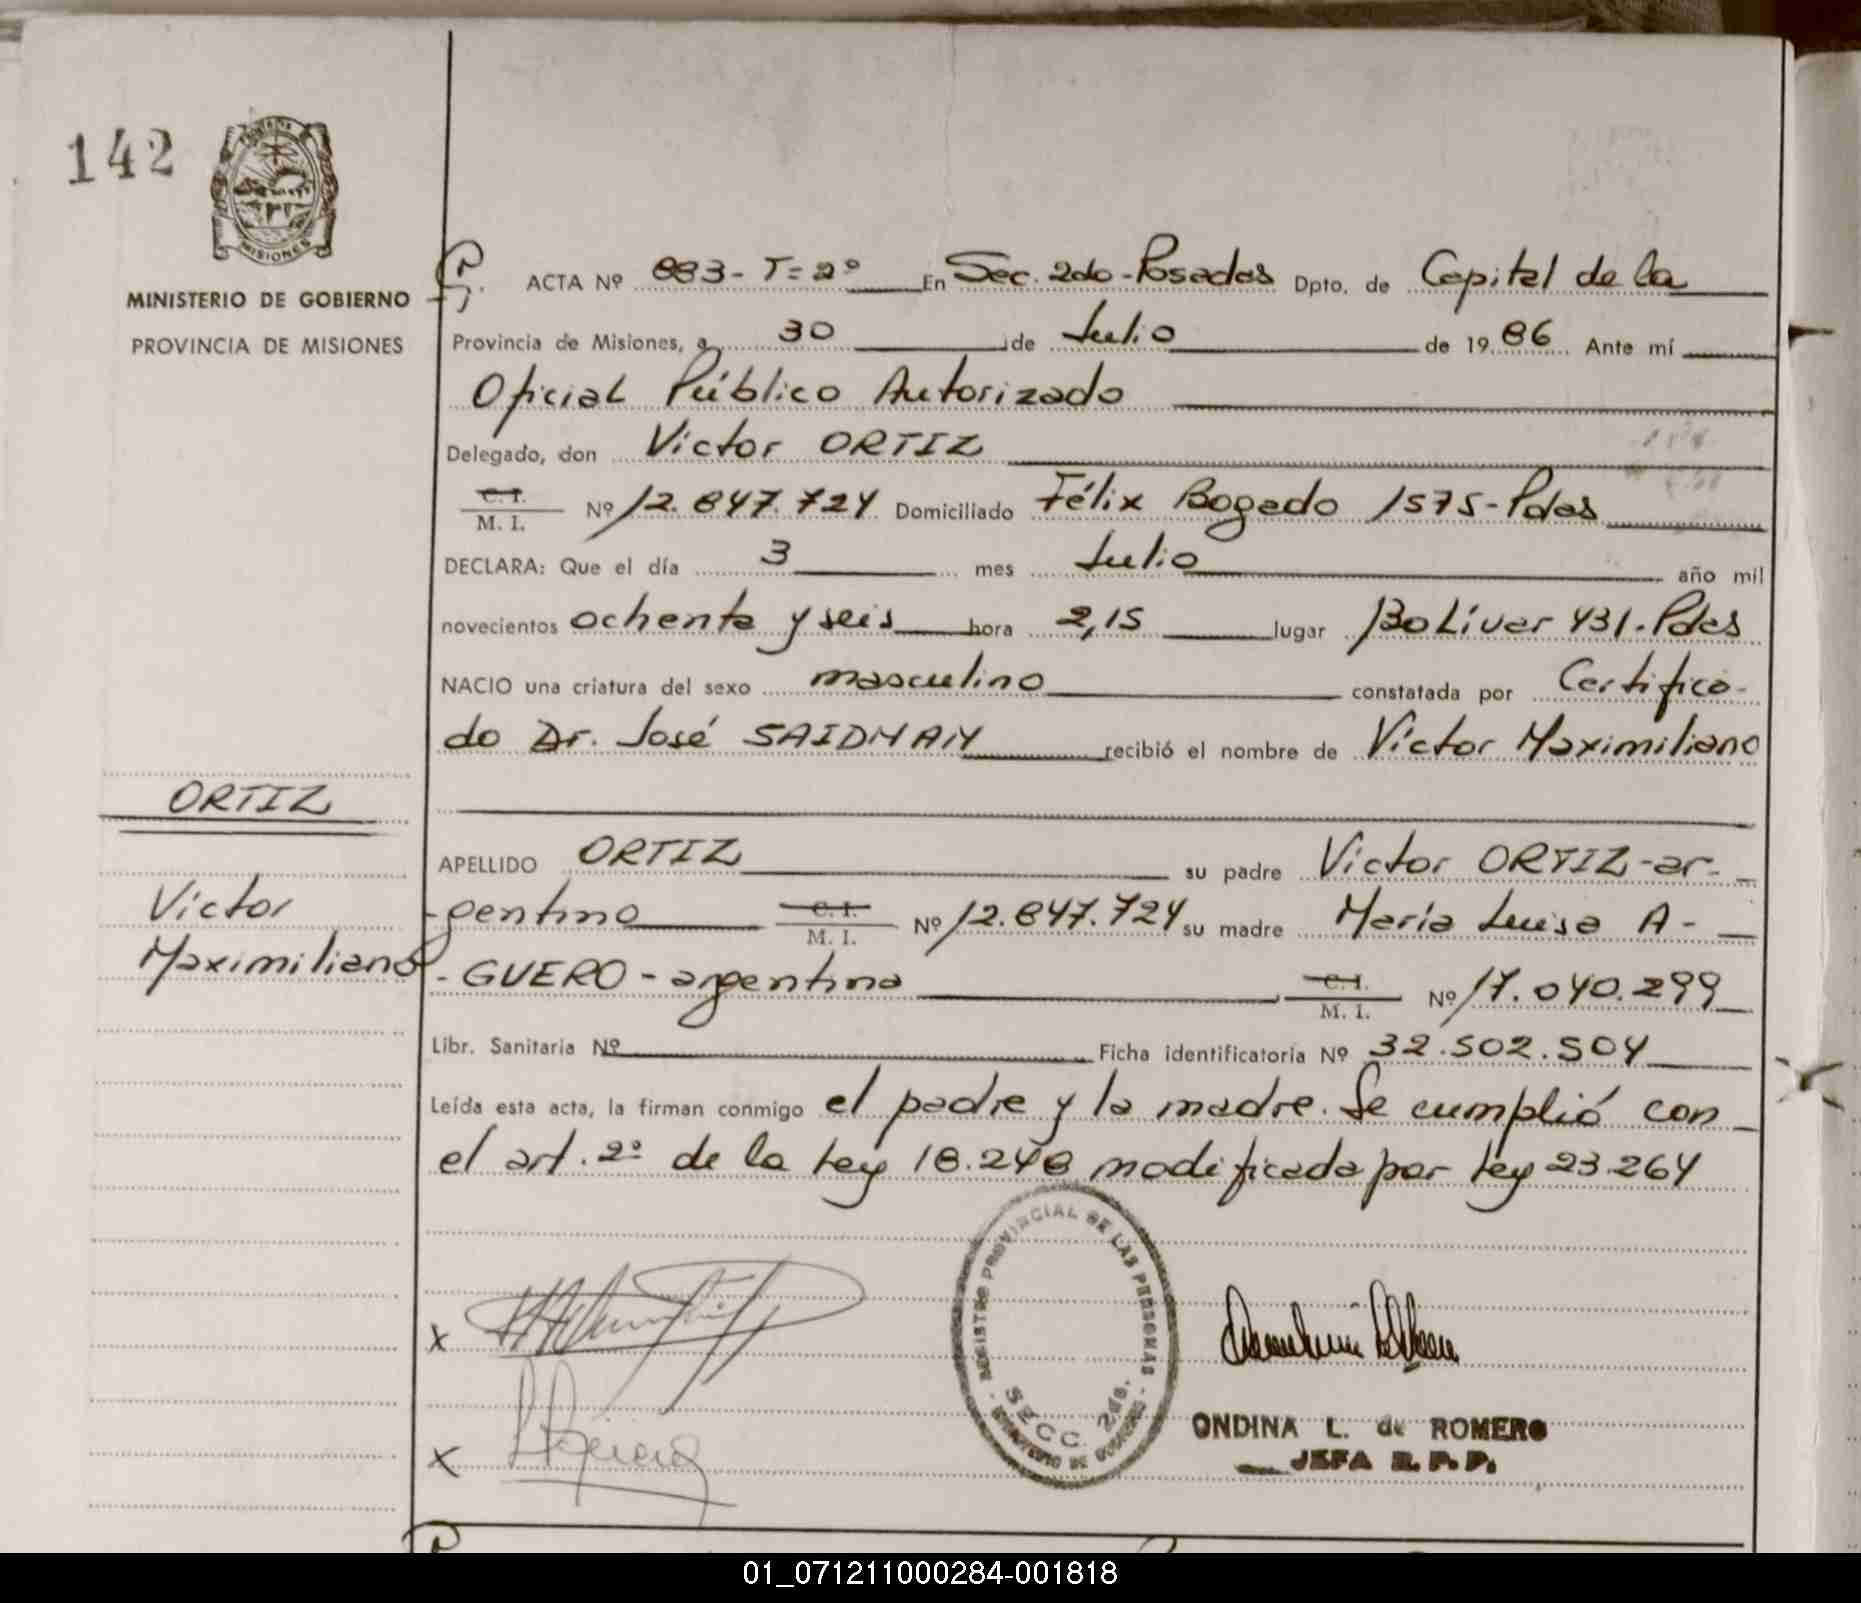 142
PROVINCIA DE
MISIONES
MINISTERIO DE GOBIERNO
PROVINCIA DE MISIONES
ACTA Nº 883- T=2º En Sec. 2do-Posadas Dpto. de Capital de la
Provincia de Misiones, a 30 de Julio de 1986 Ante mí
Oficial Público Autorizado
Delegado, don Víctor ORTIZ
C. I.
M. I. Nº 12.847.724 Domiciliado Félix Bogado 1575-Pdas
DECLARA: Que el día 3 mes Julio año mil
novecientos ochenta y seis hora 2,15 lugar Bolívar 431.Pdas
NACIO una criatura del sexo masculino constatada por Certifica-
do Dr. José SAIDMAN recibió el nombre de Víctor Maximiliano
ORTIZ
Víctor
Maximiliano
APELLIDO ORTIZ su padre Víctor ORTIZ-ar-
-gentino C. I.
M. I. Nº 12.847.724 su madre María Luisa A-
-GUERO-argentina C. I.
M. I. Nº 17.040.299
Libr. Sanitaria Nº Ficha identificatoria Nº 32.502.504
Leída esta acta, la firman conmigo el padre y la madre. Se cumplió con
el art. 2º de la Ley 18.248 modificada por Ley 23.264
REGISTRO PROVINCIAL DE LAS PERSONAS
SECC. 2da.
x
x
ONDINA L. de ROMERO
JEFA R. P. P.
01_071211000284-001818